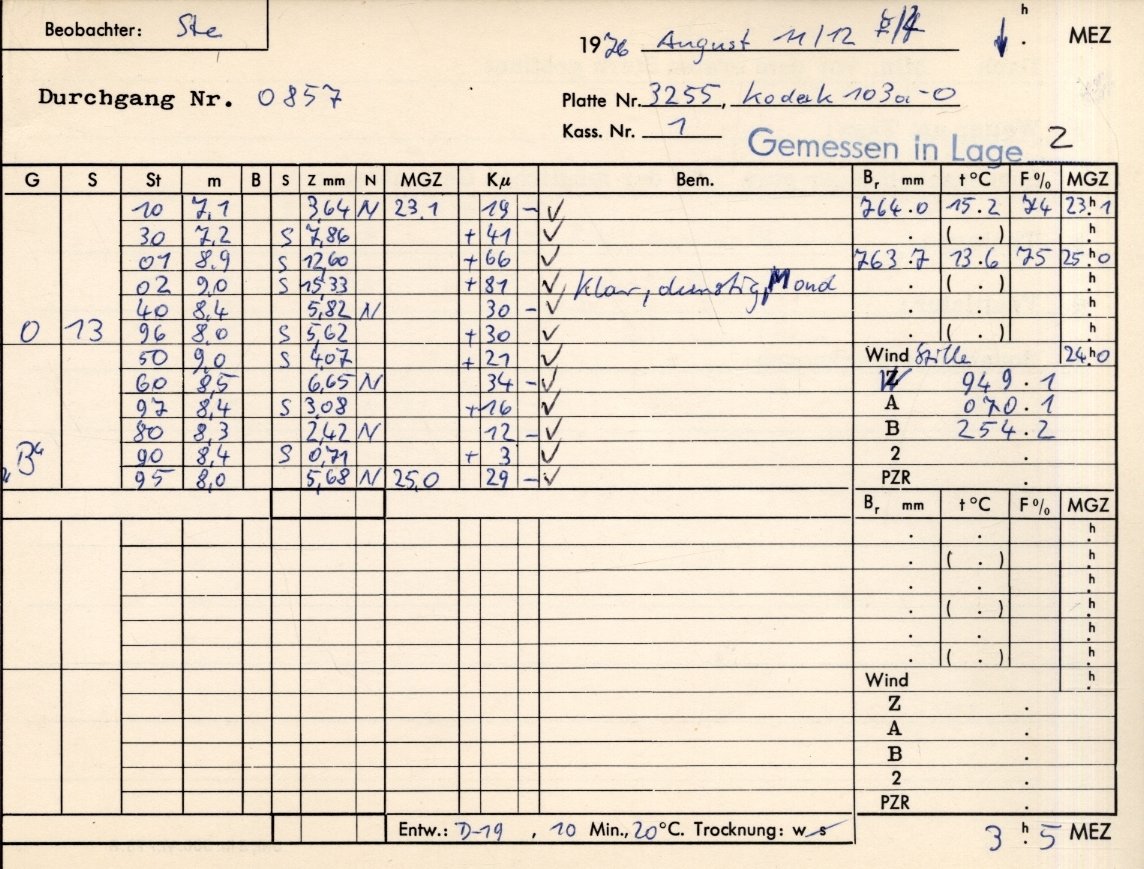 Beobachter: Ste
1976 August 11/12 h . MEZ
Durchgang Nr. 0857
Platte Nr. 3255, Kodak 103a-O
Kass. Nr. 1
Gemessen in Lage 2
G S St m B S Z mm N MGZ Kμ Bem. Br mm t °C F % MGZ
10 7,1 3,64 N 23,1 19 - ✓ 764.0 15.2 74 23h.1
30 7,2 S 7,86 + 41 ✓ . ( . ) h.
01 8,9 S 12,60 + 66 ✓ 763.7 13.6 75 25h.0
02 9,0 S 15,33 + 81 ✓ Klar, dunstig, Mond . ( . ) h.
40 8,4 5,82 N 30 - ✓ . . h.
0 13 96 8,0 S 5,62 + 30 ✓ . ( . ) h.
50 9,0 S 4,07 + 21 ✓ Wind Stille 24h.0
60 8,5 6,65 N 34 - ✓ Z 949.1
97 8,4 S 3,08 + 16 ✓ A 070.1
80 8,3 2,42 N 12 - ✓ B 254.2
„B“ 90 8,4 S 0,71 + 3 ✓ 2 .
95 8,0 5,68 N 25,0 29 - ✓ PZR .
Br mm t °C F % MGZ
. . h.
. ( . ) h.
. . h.
. ( . ) h.
. . h.
. ( . ) h.
Wind h.
Z .
A .
B .
2 .
PZR .
Entw.: D-19 , 10 Min., 20°C. Trocknung: w s
3 h. 5 MEZ